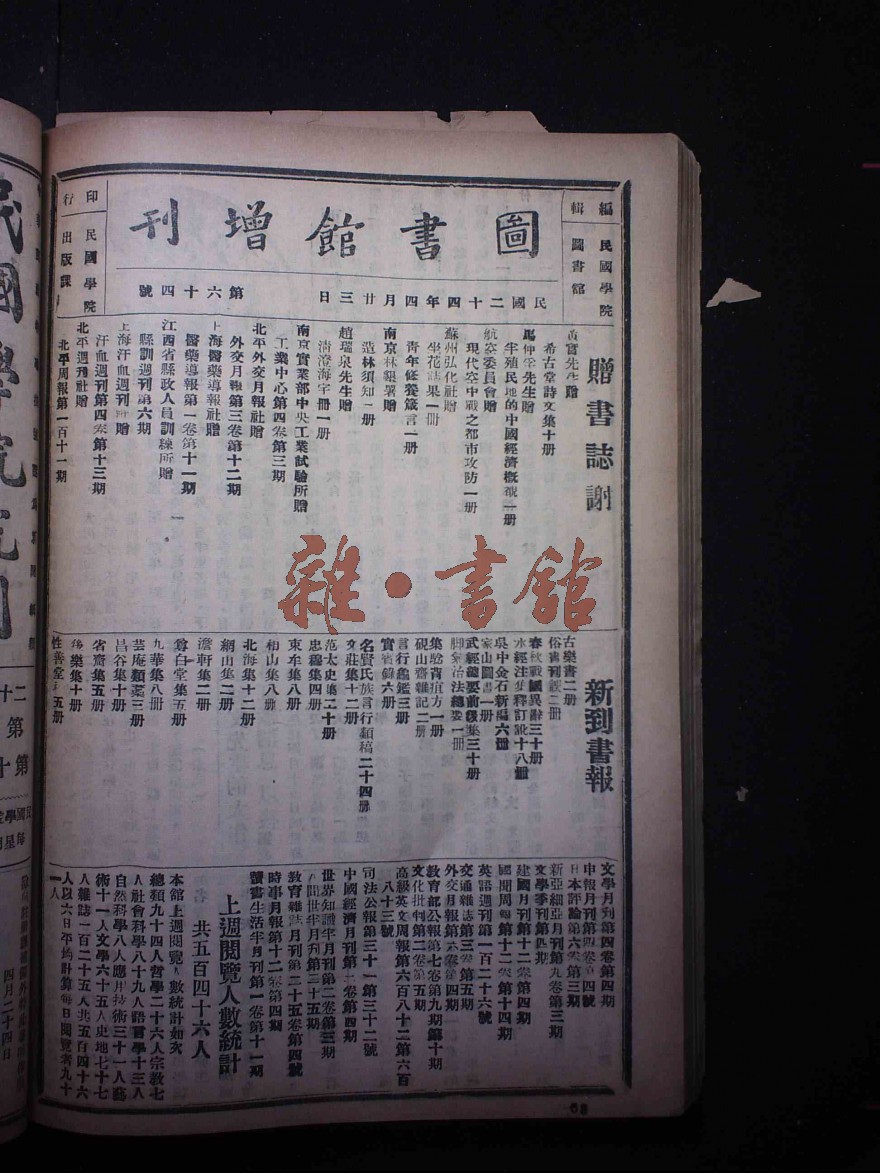 圖書館增刊
編輯 民國學院圖書館
印行 民國學院出版課
民國二十四年四月廿三日
第六十四號
贈書誌謝
黃賓先生贈
希古堂詩文集十册
馬仲　先生贈
半殖民地的中國經濟概觀一册
航空委員會贈
現代空中戰之都市攻防一册
蘇州弘化社贈
坐花誌果一册
青年修養箴言一册
南京林墾署贈
造林須知一册
趙瑞泉先生贈
清澄海宇册一册
南京實業部中央工業試驗所贈
工業中心第四卷第三期
北平外交月報社贈
外交月報第三卷第十二期
上海醫藥導報社贈
醫藥導報第一卷第十一期
江西省縣政人員訓練所贈
縣訓週刊第六期
上海汗血週刊所贈
汗血週刊第四卷第十三期
北平週刊社贈
北平周報第一百十一期
新到書報
古樂書二册
俗書刊誤二册
春秋戰國異辭三十册
水經注集釋訂訛十八册
吳中金石新編六册
家山圖書一册
武經總要前後集三十册
脚氣治法總要一册
集驗背疽方一册
硯山齋雜記二册
言行龜鑑三册
實賓錄六册
名賢氏族言行類稿二十四册
文莊集十二册
范太史集二十册
忠穆集四册
東牟集八册
和山集八册
北海集十二册
網山集二册
澹軒集二册
尊白堂集五册
九華集八册
芸庵類藁三册
昌谷集十册
省齋集五册
樂集十册
性善堂　五册
文學月刊第四卷第四期
申報月刊第四卷第四號
日本評論第六卷第三期
新亞細亞月刊第九卷第三期
文學季刊第四期
建國月刊第十二卷第四期
國聞周報第十二卷第十四期
英語週刊第一百二十六號
交通雜誌第三卷第五期
外交月報第六卷第四期
教育部公報第七卷第九期第十期
文化批判第二卷第五期
高級英文周報第六百八十二第六百
八十三號
司法公報第三十一第三十二號
中國經濟月刊第三卷第四期
世界知識半月刊第二卷第三期
人間世半月刊第二十五期
教育雜誌月刊第二十五卷第四號
時事月報第十二卷第四期
讀書生活半月刊第一卷第十一期
上週閱覽人數統計
共五百四十六人
本館上週閱覽人數統計如次
總類九十四人哲學二十六人宗教七
人社會科學八十九人語言學十三人
自然科學八人應用技術三十一人藝
術十一人文學六十五人史地七十七
人雜誌一百二十五人共五百四十六
人以六日平均計算每日閱覽者九十
一人
68
雜·書館
四月二十四日